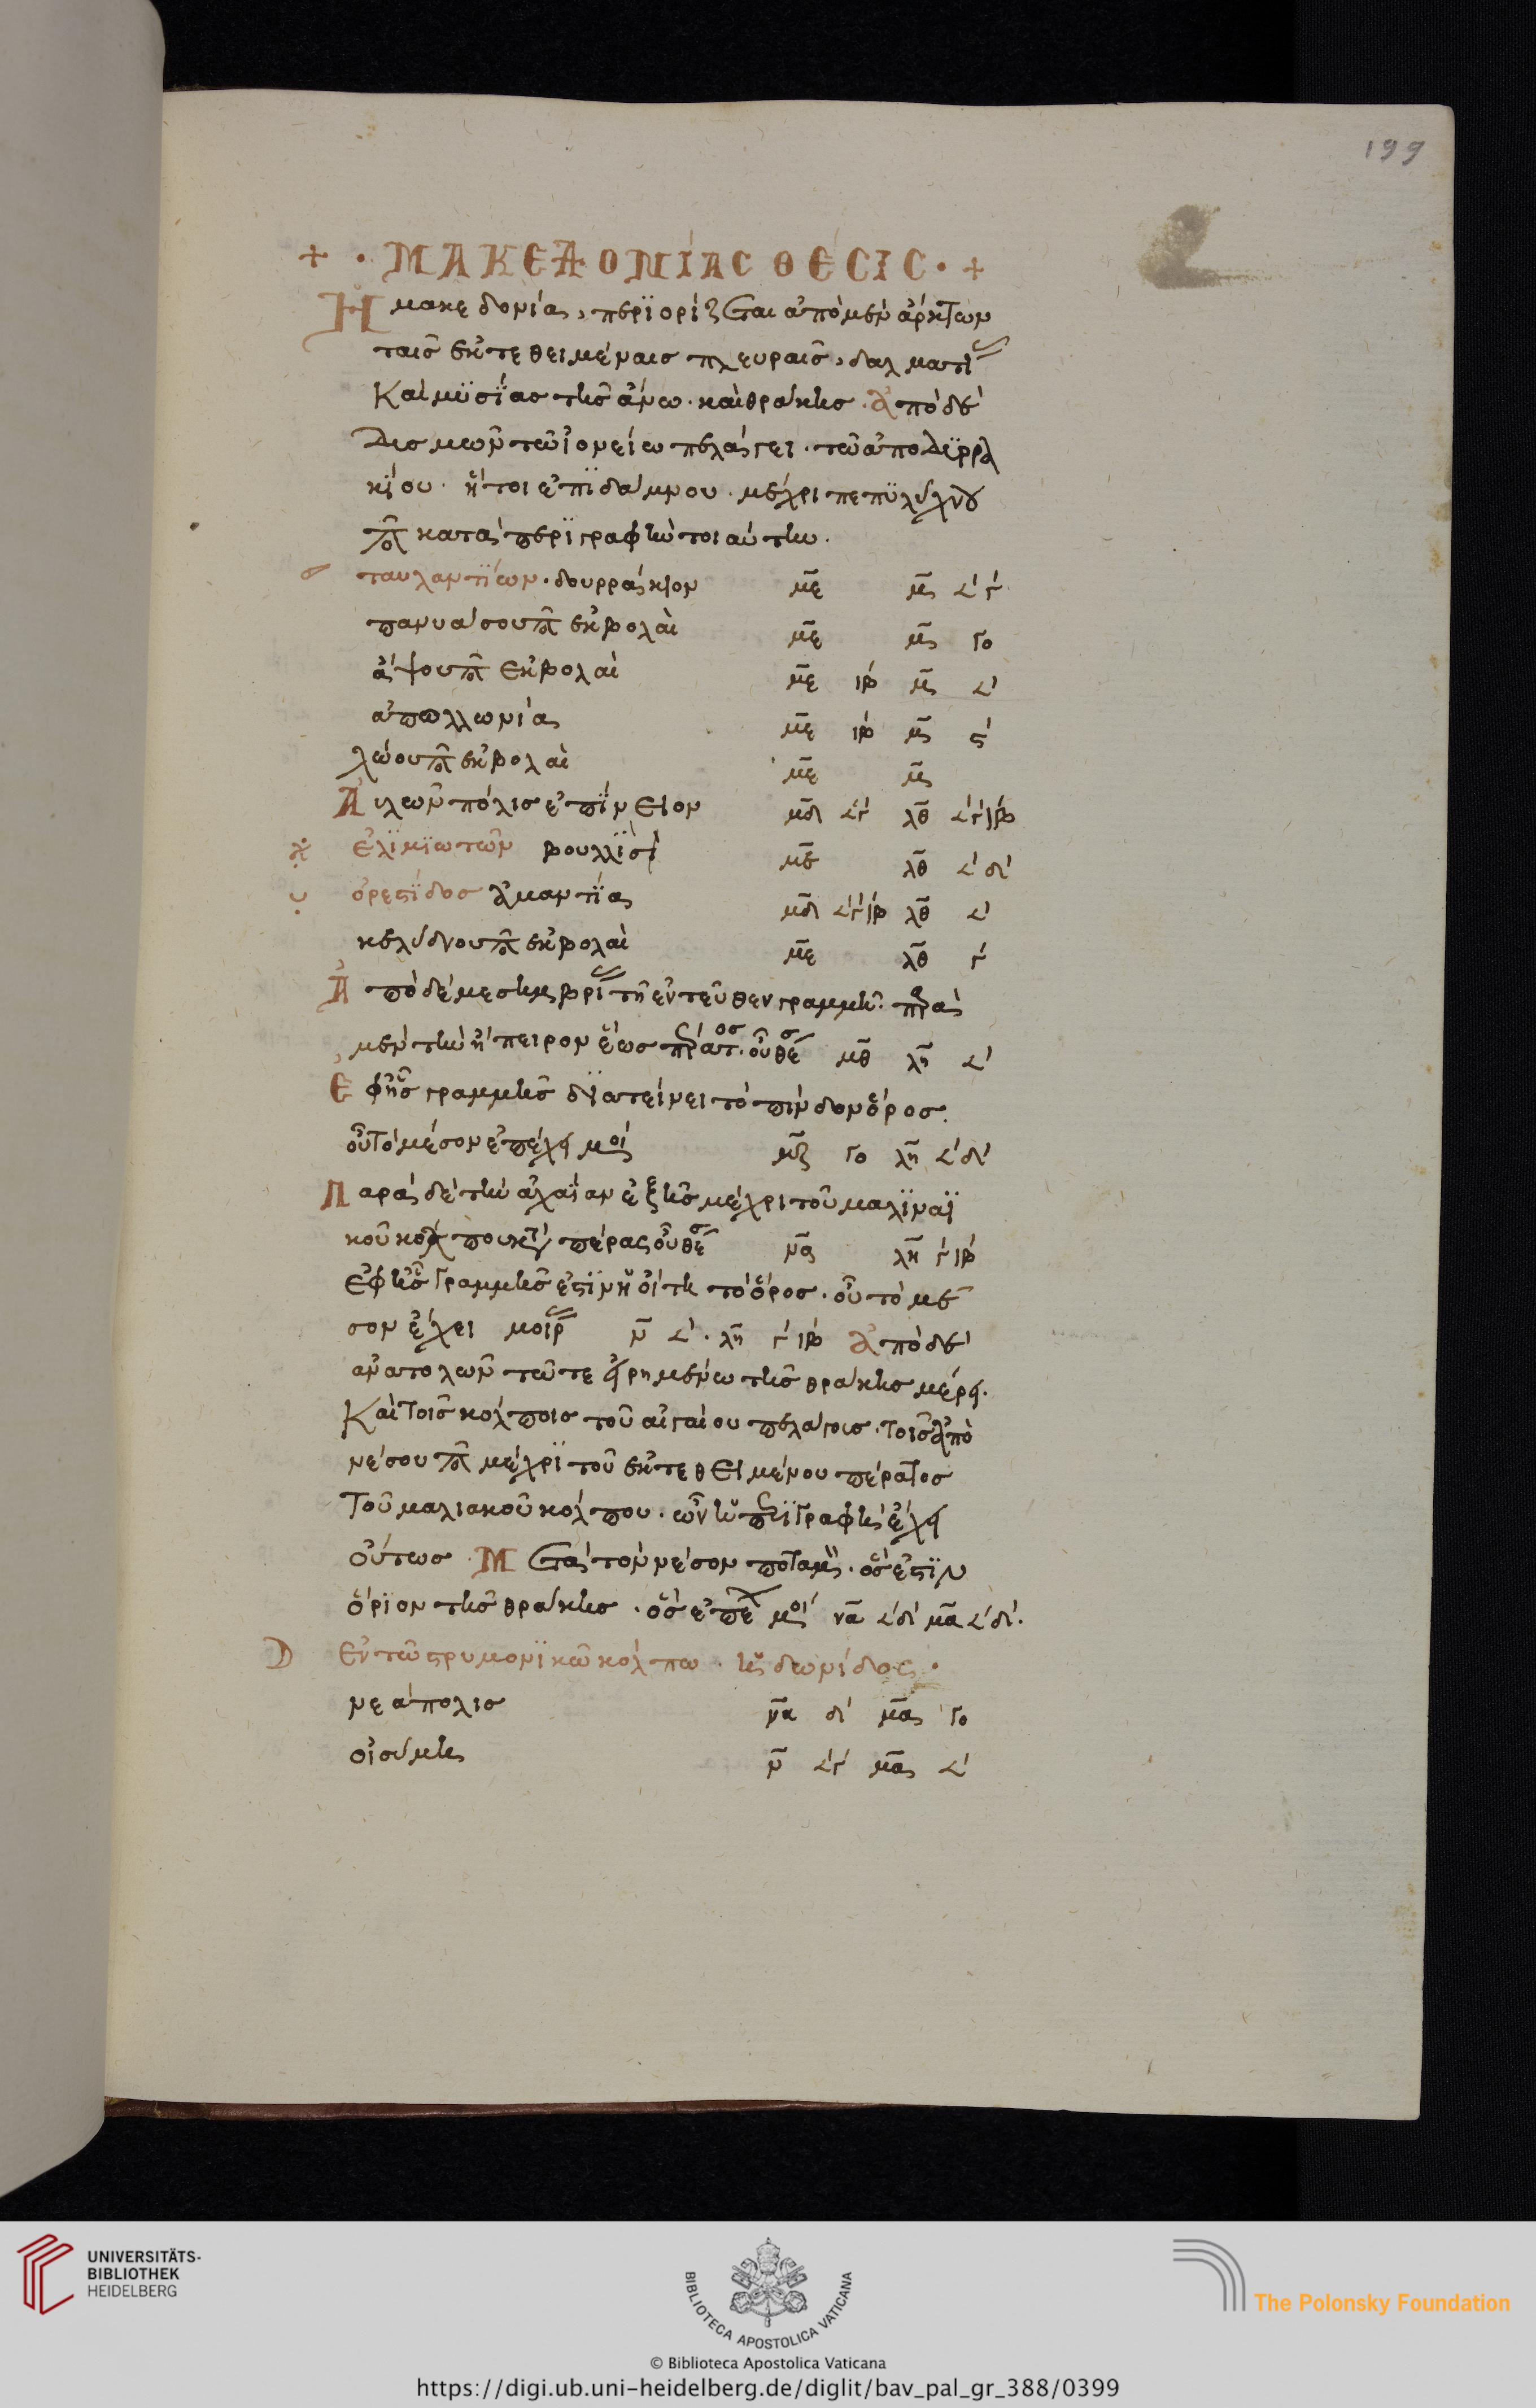 199
+ · ΜΑΚΕΔΟΝΊΑC ΘΈCΙC · +
Η μακεδονίας, περϊορίζεται ἀπὸ μὲν ἄρκτων
ταῖσ ἐκτεθειμέναισ πλευραῖσ, δαλματί
Καὶ μϋσΐασ τῆσ ἄνω. καὶ θράκησ. ἀπὸ δὲ
Δισμῶν τῶ ἰονείω πελάγει. τῶ ἀπὸ Δϋρρα
κΐου. ἤτοι ἐπϊδάμνου. μέχρι πεπϋλύχνου
κατὰ περϊγραφὴν τοιαύτην.
ταυλαντΐων. δουρράκιον με̄ μ̄ς 𐅵 γ
πανυάσου ἐκβολαὶ με̄ μ̄ς γο
ἄψου ἐκβολαὶ με̄ ιβ μ̄ς 𐅵
ἀπολλωνίας με̄ ιβ μ̄ς ς
λώου ἐκβολαὶ με̄ μ̄ς
Αὐλῶν πόλισ ἐπΐνειον μδ̄ 𐅵γ λθ̄ 𐅵γιβ
ἐλϊμϊωτῶν βουλλϊσὶ με̄ λθ̄ 𐅵 δ
ὀρεστΐδοσ ἀμαντΐας μδ̄ 𐅵γιβ λθ̄ 𐅵
κελύδνου ἐκβολαὶ με̄ λθ̄ γ
Ἀπὸ δὲ μεσημβρΐ τῆ ἐντεῦθεν γραμμῆ. παρὰ
μὲν τὴν ἤπειρον ἕωσ πέρατος. οὗ θέσ μθ̄ λη̄ 𐅵
Ἐφ ἧσ γραμμῆσ δϊατείνει τὸ πίνδον ὄροσ.
οὗ τὸ μέσον ἐπέχει μοί μζ̄ γο λη̄ 𐅵 δ
Παρὰ δὲ τὴν ἀχαΐαν ἑξῆσ μέχρι τοῦ μαλϊναϊ
κοῦ κόλπου κτ πέρας οὗ θέσ νᾱ λη̄ γιβ
Ἐφ ἧσ Γραμμῆσ ἐστϊν ἡ οἴτη τὸ ὄροσ. οὗ τὸ μέ
σον ἔχει μοιρ ν̄ 𐅵. λη̄ γ ιβ ἀπὸ δὲ
ἀνατολῶν τῶ τε εἰρημένω τῆσ θράκησ μέρει.
Καὶ τοῖσ κόλποισ τοῦ αἰγαίου πελάγουσ. τοῖσ ἀπὸ
νέσου μέχρϊ τοῦ ἐκτεθειμένου πέρατοσ
Τοῦ μαλιακοῦ κόλπου. ὧν ἡ περϊγραφὴ ἔχει
οὕτωσ. Μετὰ τὸν νέσον ποταμὸν. ὅσ ἐστΐν
ὅρϊον τῆσ θράκησ. ὃσ ἐπέχ μοί νᾱ 𐅵δ μᾱ 𐅵δ.
Ἐν τῶ στρυμονϊκῶ κόλπω. ἠδωνίδος.
νεάπολισ νᾱ δ μᾱ γο
οἰσύμης ν̄ 𐅵γ μᾱ 𐅵
UNIVERSITÄTS-
BIBLIOTHEK
HEIDELBERG
BIBLIOTECA APOSTOLICA VATICANA
© Biblioteca Apostolica Vaticana
The Polonsky Foundation
https://digi.ub.uni-heidelberg.de/diglit/bav_pal_gr_388/0399